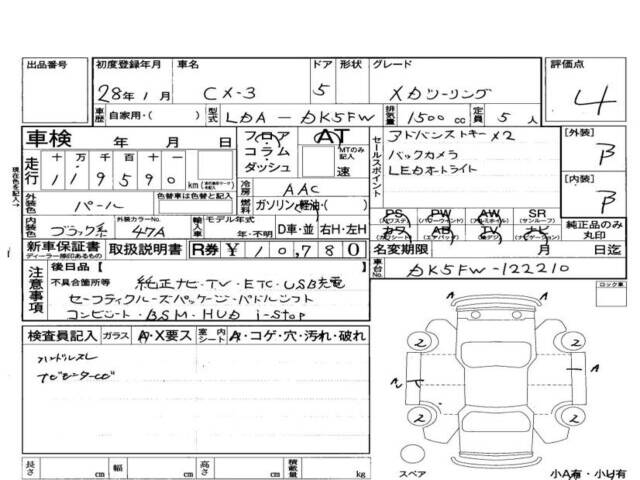 出品番号 初度登録年月 車名 ドア 形状 グレード 評価点
28年1月 CX-3 5 XDツーリング 4
車歴 自家用・( ) 型式 LDA-DK5FW 排気量 1500 cc 定員 5 人
車検 年 月 日 フロア コラム ダッシュ AT MTのみ記入 速
セールスポイント アドバンストキー×2
バックカメラ
LEDオートライト
[外装] B
[内装] B
現在色を記入→
走行 十 万 千 百 十 一
119590 km
冷房 AAC
外装色 パール 色替車は色替と記入 燃料 ガソリン・軽油・( )
内装色 ブラック系 外装カラーNo. 47A 輸入車 モデル年式 年・不明 D車・並 右H・左H
PS (パワステ) PW (パワーウィンド) AW (アルミホイル) SR (サンルーフ)
カワ (カワシート) AB (エアバッグ) TV (テレビ) ナビ (ナビゲーション)
純正品のみ丸印
新車保証書 ディーラー捺印あるもの 取扱説明書 R券 ¥10,780
名変期限 月 日迄
注意事項 後日品[
車台No. DK5FW-122210
不具合箇所等 純正ナビ・TV・ETC・USB充電
セーフティクルーズパッケージ・パドルシフト
コンビシート・BSM・HUD i-stop
ロック車
検査員記入 ガラス A・X要ス 室内シート A・コゲ・穴・汚れ・破れ
ハンドルスレ
A
2 2
A A
2 2
スペア
長さ cm 幅 cm 高さ cm 積載量 kg
小A有・小U有